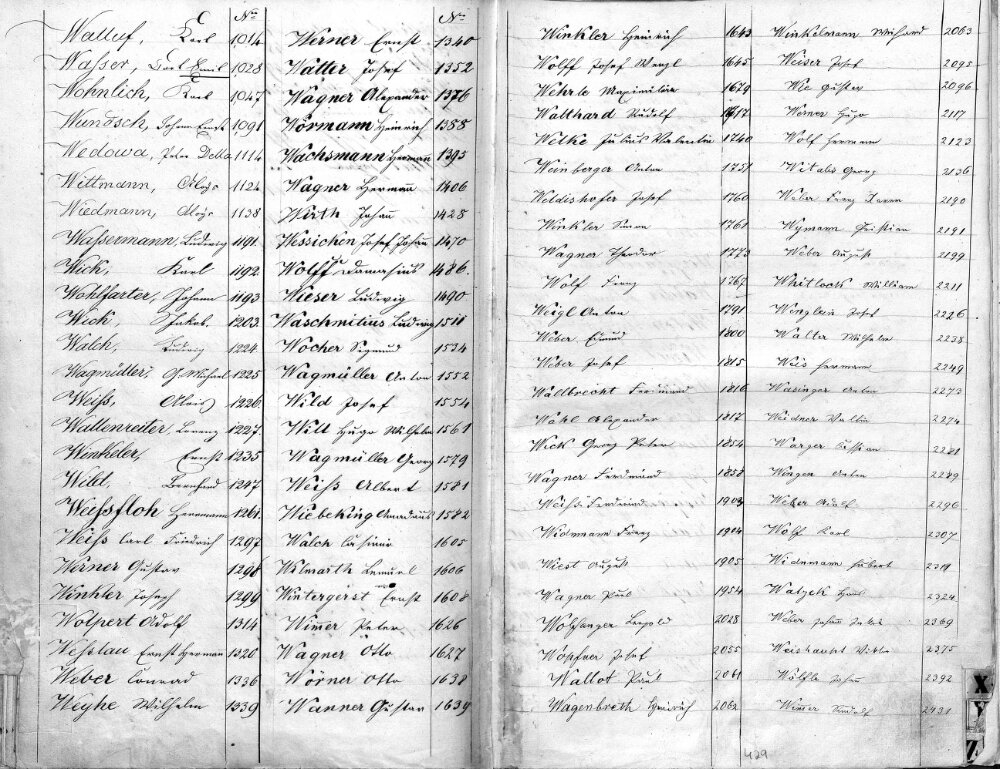 No
Walluf, Karl 1014
Wasser, Carl Emil 1028
Wohnlich, Karl 1047
Wundsch, Johann Ernst 1091
Wedowa, Peter Della 1114
Wittmann, Aloys 1124
Wiedmann, Aloys 1138
Wassermann, Ludwig 1191
Wick, Karl 1192
Wohlfarter, Johann 1193
Wick, Jakob 1203
Walch, Ludwig 1224
Wagmüller, G. Michael 1225
Weiss, Alois 1226
Wallenreiter, Lorenz 1227
Winkeler, Ernst 1235
Weld, Bernhard 1247
Weissfloh Herrmann 1261
Weiss Carl Friedrich 1297
Werner Gustav 1298
Winkler Joseph 1299
Wolpert Adolf 1314
Wesslau Ernst Herman 1320
Weber Conrad 1336
Weyhe Wilhelm 1339
No
Werner Ernst 1340
Watter Josef 1352
Wagner Alexander 1376
Wörmann Heinrich 1388
Wachsmann Herman 1395
Wagner Herman 1406
Wirth Johan 1428
Wessicken Josef Johan 1470
Wolff Damasius 1486
Wieser Ludwig 1490
Waschmitius Ludwig 1511
Wocher Sigmund 1534
Wagmüller Anton 1552
Wild Josef 1554
Wilt Hugo Wilhelm 1561
Wagmüller Georg 1579
Weiss Albert 1581
Wiebeking Amadäus 1582
Walch Casimir 1605
Wilmarth Lemuel 1606
Wintergerst Ernst 1608
Wimer Peter 1626
Wagner Otto 1627
Wörner Otto 1638
Wanner Gustav 1639
Winkler Heinrich 1643
Wolff Josef Wenzl 1645
Wehrle Maximilian 1679
Walthard Rudolf 1717
Welke Julius Valentin 1740
Weinberger Anton 1751
Weldishofer Josef 1760
Winkler Simon 1761
Wagner Theodor 1773
Wolf Franz 1767
Weigl Anton 1791
Weber Emund 1800
Weber Josef 1815
Waldbrecht Ferdinand 1816
Wahl Alexander 1817
Wick Georg Peter 1854
Wagner Ferdinand 1858
Weiss Ferdinand 1903
Widnmann Franz 1904
Wiest August 1905
Wagner Paul 1954
Wolfsanger Leopold 2028
Wöpfner Josef 2055
Wallot Paul 2061
Wagenbreth Heinrich 2062
Winkelmann Richard 2063
Weiser Josef 2095
Wie Gustav 2096
Werner Hugo 2117
Wolf Hermann 2123
Witalis Georg 2136
Weber Franz Xaver 2190
Wymann Christian 2191
Weber August 2199
Whitlock William 2211
Wenglein Josef 2226
Walter Wilhelm 2238
Weis Hermann 2249
Wasinger Anton 2273
Weidner Valtin 2274
Warger Cassian 2281
Wengen Anton 2289
Weber Adolf 2296
Wolf Karl 2307
Widnmann Hubert 2319
Hans 2324
Weber Johann 2369
Weishaupt Viktor 2375
Wölfle Johann 2392
Wimmer Rudolf 2431
X
Y
Z
429